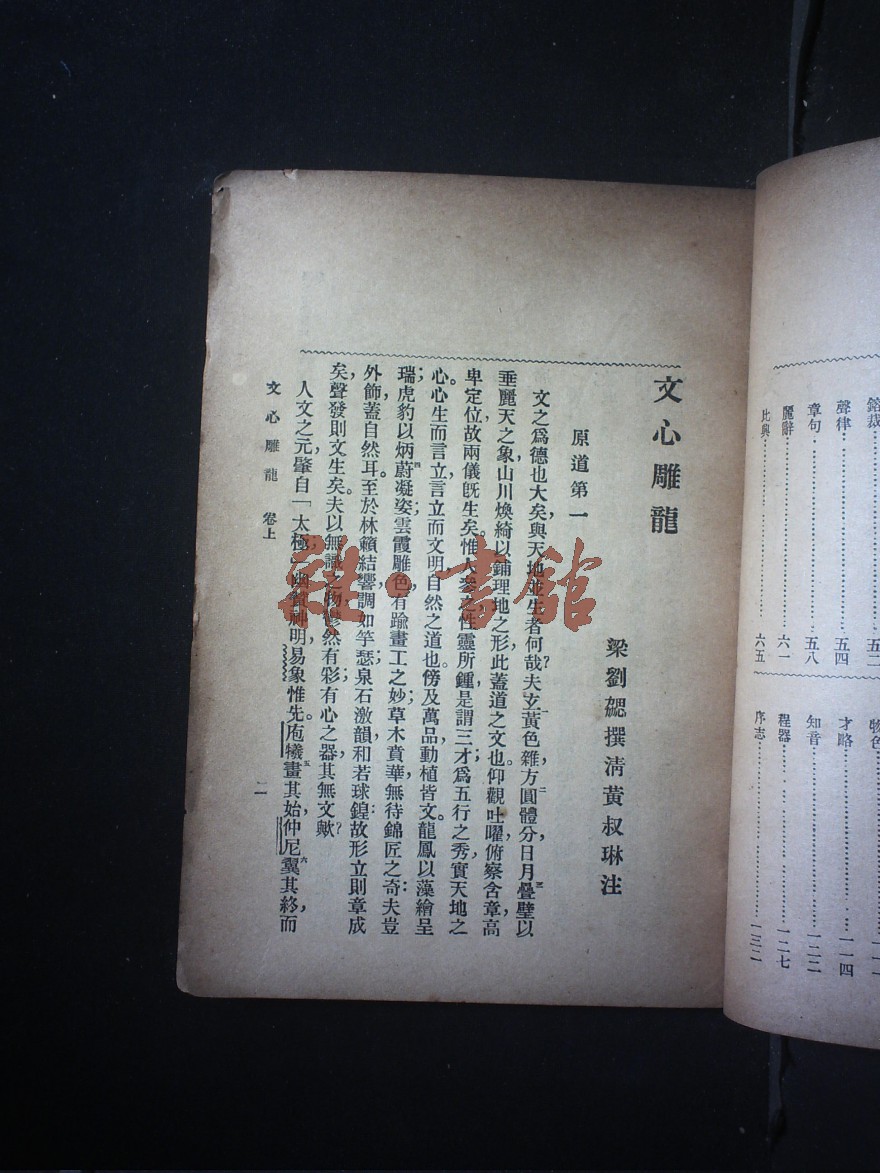 鎔裁 五二
聲律 五四
章句 五八
麗辭 六一
比興 六五
物色
才略 一一四
知音 一二二
程器 一二七
序志 一三二
文心雕龍
梁劉勰撰淸黃叔琳注
原道第一
文之爲德也大矣,與天地並生者何哉?夫玄黃色雜,方圓體分,日月疊璧,以
垂麗天之象;山川煥綺,以鋪理地之形:此蓋道之文也。仰觀吐曜,俯察含章,高
卑定位,故兩儀旣生矣。惟人參之,性靈所鍾,是謂三才;爲五行之秀,實天地之
心。心生而言立,言立而文明,自然之道也。傍及萬品,動植皆文。龍鳳以藻繪呈
瑞;虎豹以炳蔚凝姿。雲霞雕色,有踰畫工之妙;草木賁華,無待錦匠之奇:夫豈
外飾,蓋自然耳。至於林籟結響,調如竽瑟;泉石激韻,和若球鍠:故形立則章成
矣,聲發則文生矣。夫以無識之物,鬱然有彩;有心之器,其無文歟?
人文之元,肇自「太極」幽贊神明,易象惟先。庖犧畫其始,仲尼翼其終,而
文心雕龍 卷上
書館